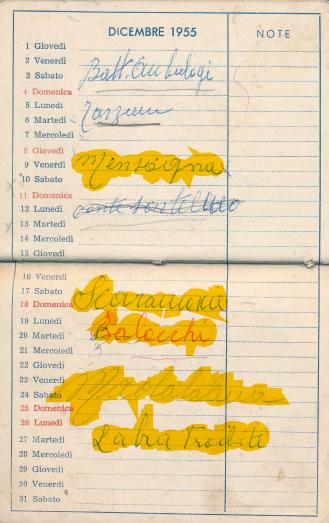 DICEMBRE 1955 NOTE
1 Giovedì
2 Venerdì
3 Sabato Batt. Ambulogi
4 Domenica
5 Lunedì
6 Martedì Zarzun
7 Mercoledì
8 Giovedì
9 Venerdì Mensogna
10 Sabato
11 Domenica
12 Lunedì
13 Martedì
14 Mercoledì
15 Giovedì
16 Venerdì
17 Sabato
18 Domenica
19 Lunedì
20 Martedì Balocchi
21 Mercoledì
22 Giovedì
23 Venerdì
24 Sabato
25 Domenica
26 Lunedì
27 Martedì Labru Troibiti
28 Mercoledì
29 Giovedì
30 Venerdì
31 Sabato